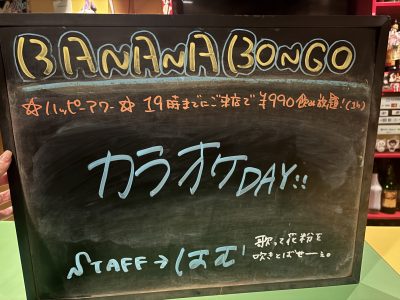 BANANA BONGO
☆ハッピーアワー☆ 19時までにご来店で¥990飲み放題!(1h)
カラオケDAY!!
STAFF→はむ
歌って花粉を
吹きとばせーっ。